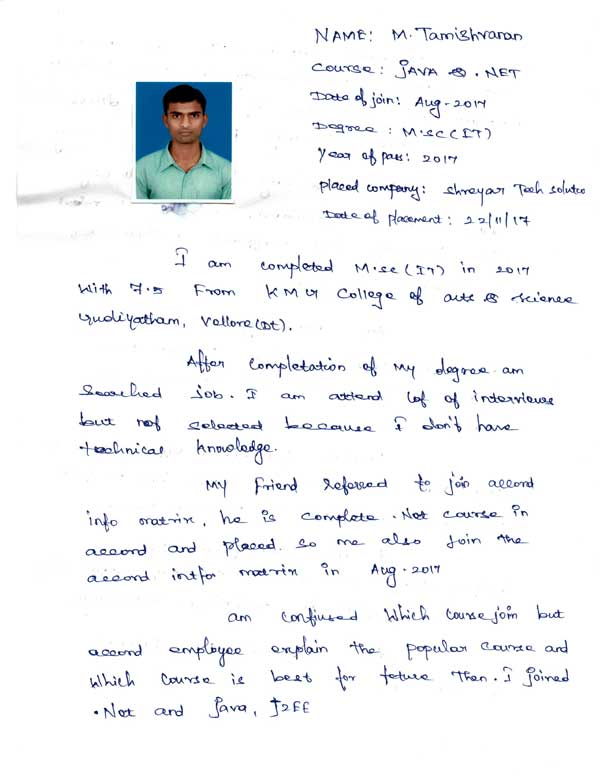 NAME: M. Tamishvaran
Course: JAVA & .NET
Date of join: Aug-2017
Degree: M.SC(IT)
Year of pass: 2017
Placed company: Shreyar Tech Solutio
Date of placement: 22/11/17
I am completed M.sc(IT) in 2017
With 7.5 From KMG College of arts & science
Gudiyatham, Vellore(Dt).
After Completation of My degree am
Searched Job. I am attend lot of interviews
but not selected because I don't have
technical knowledge.
My Friend Refered to join accord
info matrix, he is complete .Net course in
accord and placed. So me also Join the
accord intfo matrix in Aug-2017
am confiused Which Course join but
accord employee explain the popular Course and
Which Course is best for feture then. I joined
.Net and Java, J2EE